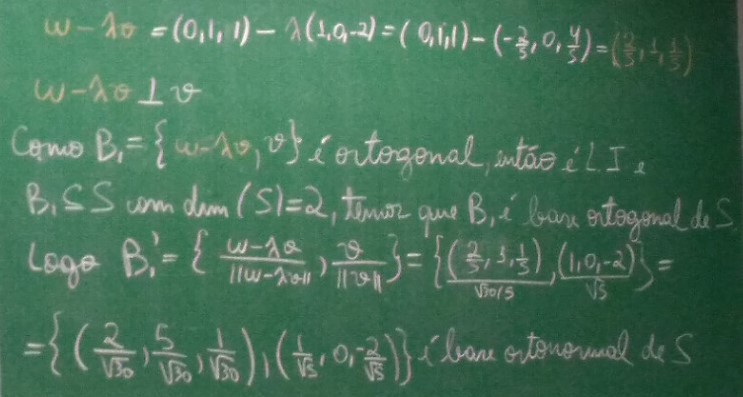 w - λv = (0,1,1) - λ(1,0,-2) = (0,1,1) - (-2/5, 0, 4/5) = (2/5, 1, 1/5)
w - λv ⊥ v
Como B₁ = {w-λv, v} é ortogonal, então é LI e
B₁ ⊆ S com dim (S)=2, temos que B₁ é base ortogonal de S.
Logo B₁' = { w-λv / ||w-λv||, v / ||v|| } = { (2/5, 1, 1/5) / √30/5, (1,0,-2) / √5 } =
= { (2/√30, 5/√30, 1/√30), (1/√5, 0, -2/√5) } é base ortonormal de S